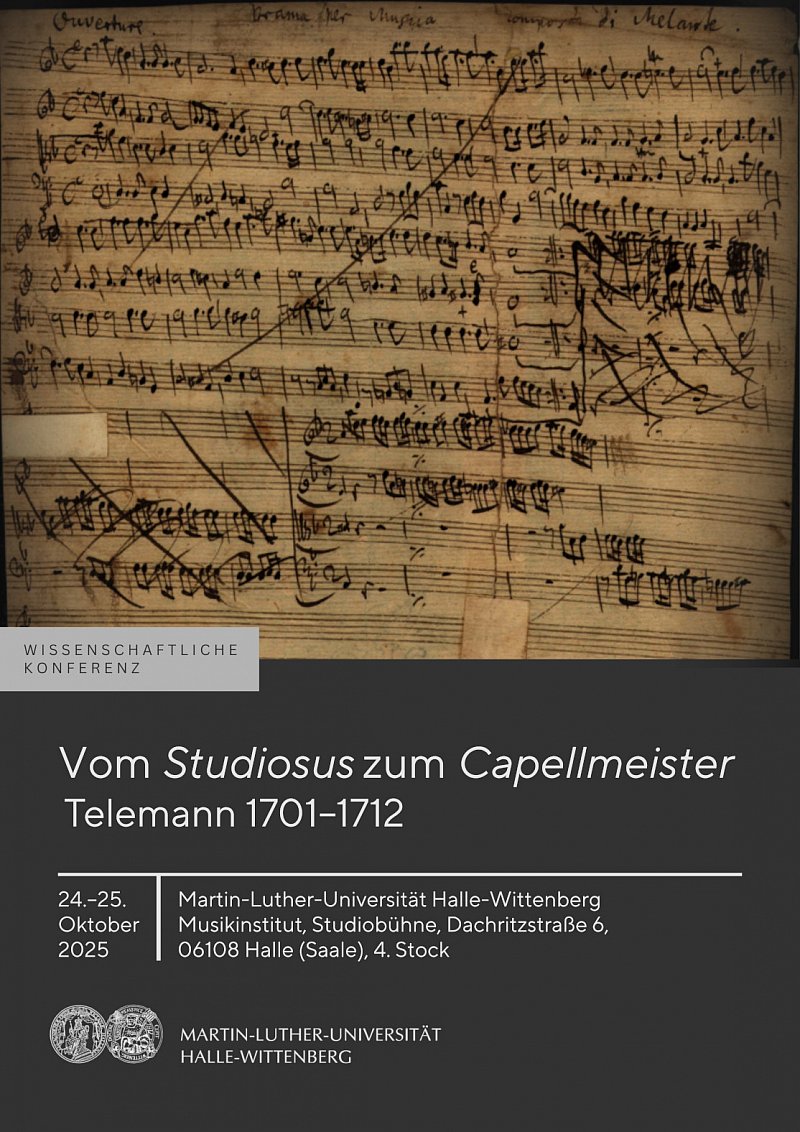 Ouverture. Drama per Musica composta di Melante.
WISSENSCHAFTLICHE
KONFERENZ
Vom Studiosus zum Capellmeister
Telemann 1701–1712
24.–25.
Oktober
2025
Martin-Luther-Universität Halle-Wittenberg
Musikinstitut, Studiobühne, Dachritzstraße 6,
06108 Halle (Saale), 4. Stock
MARTIN-LUTHER-UNIVERSITÄT
HALLE-WITTENBERG